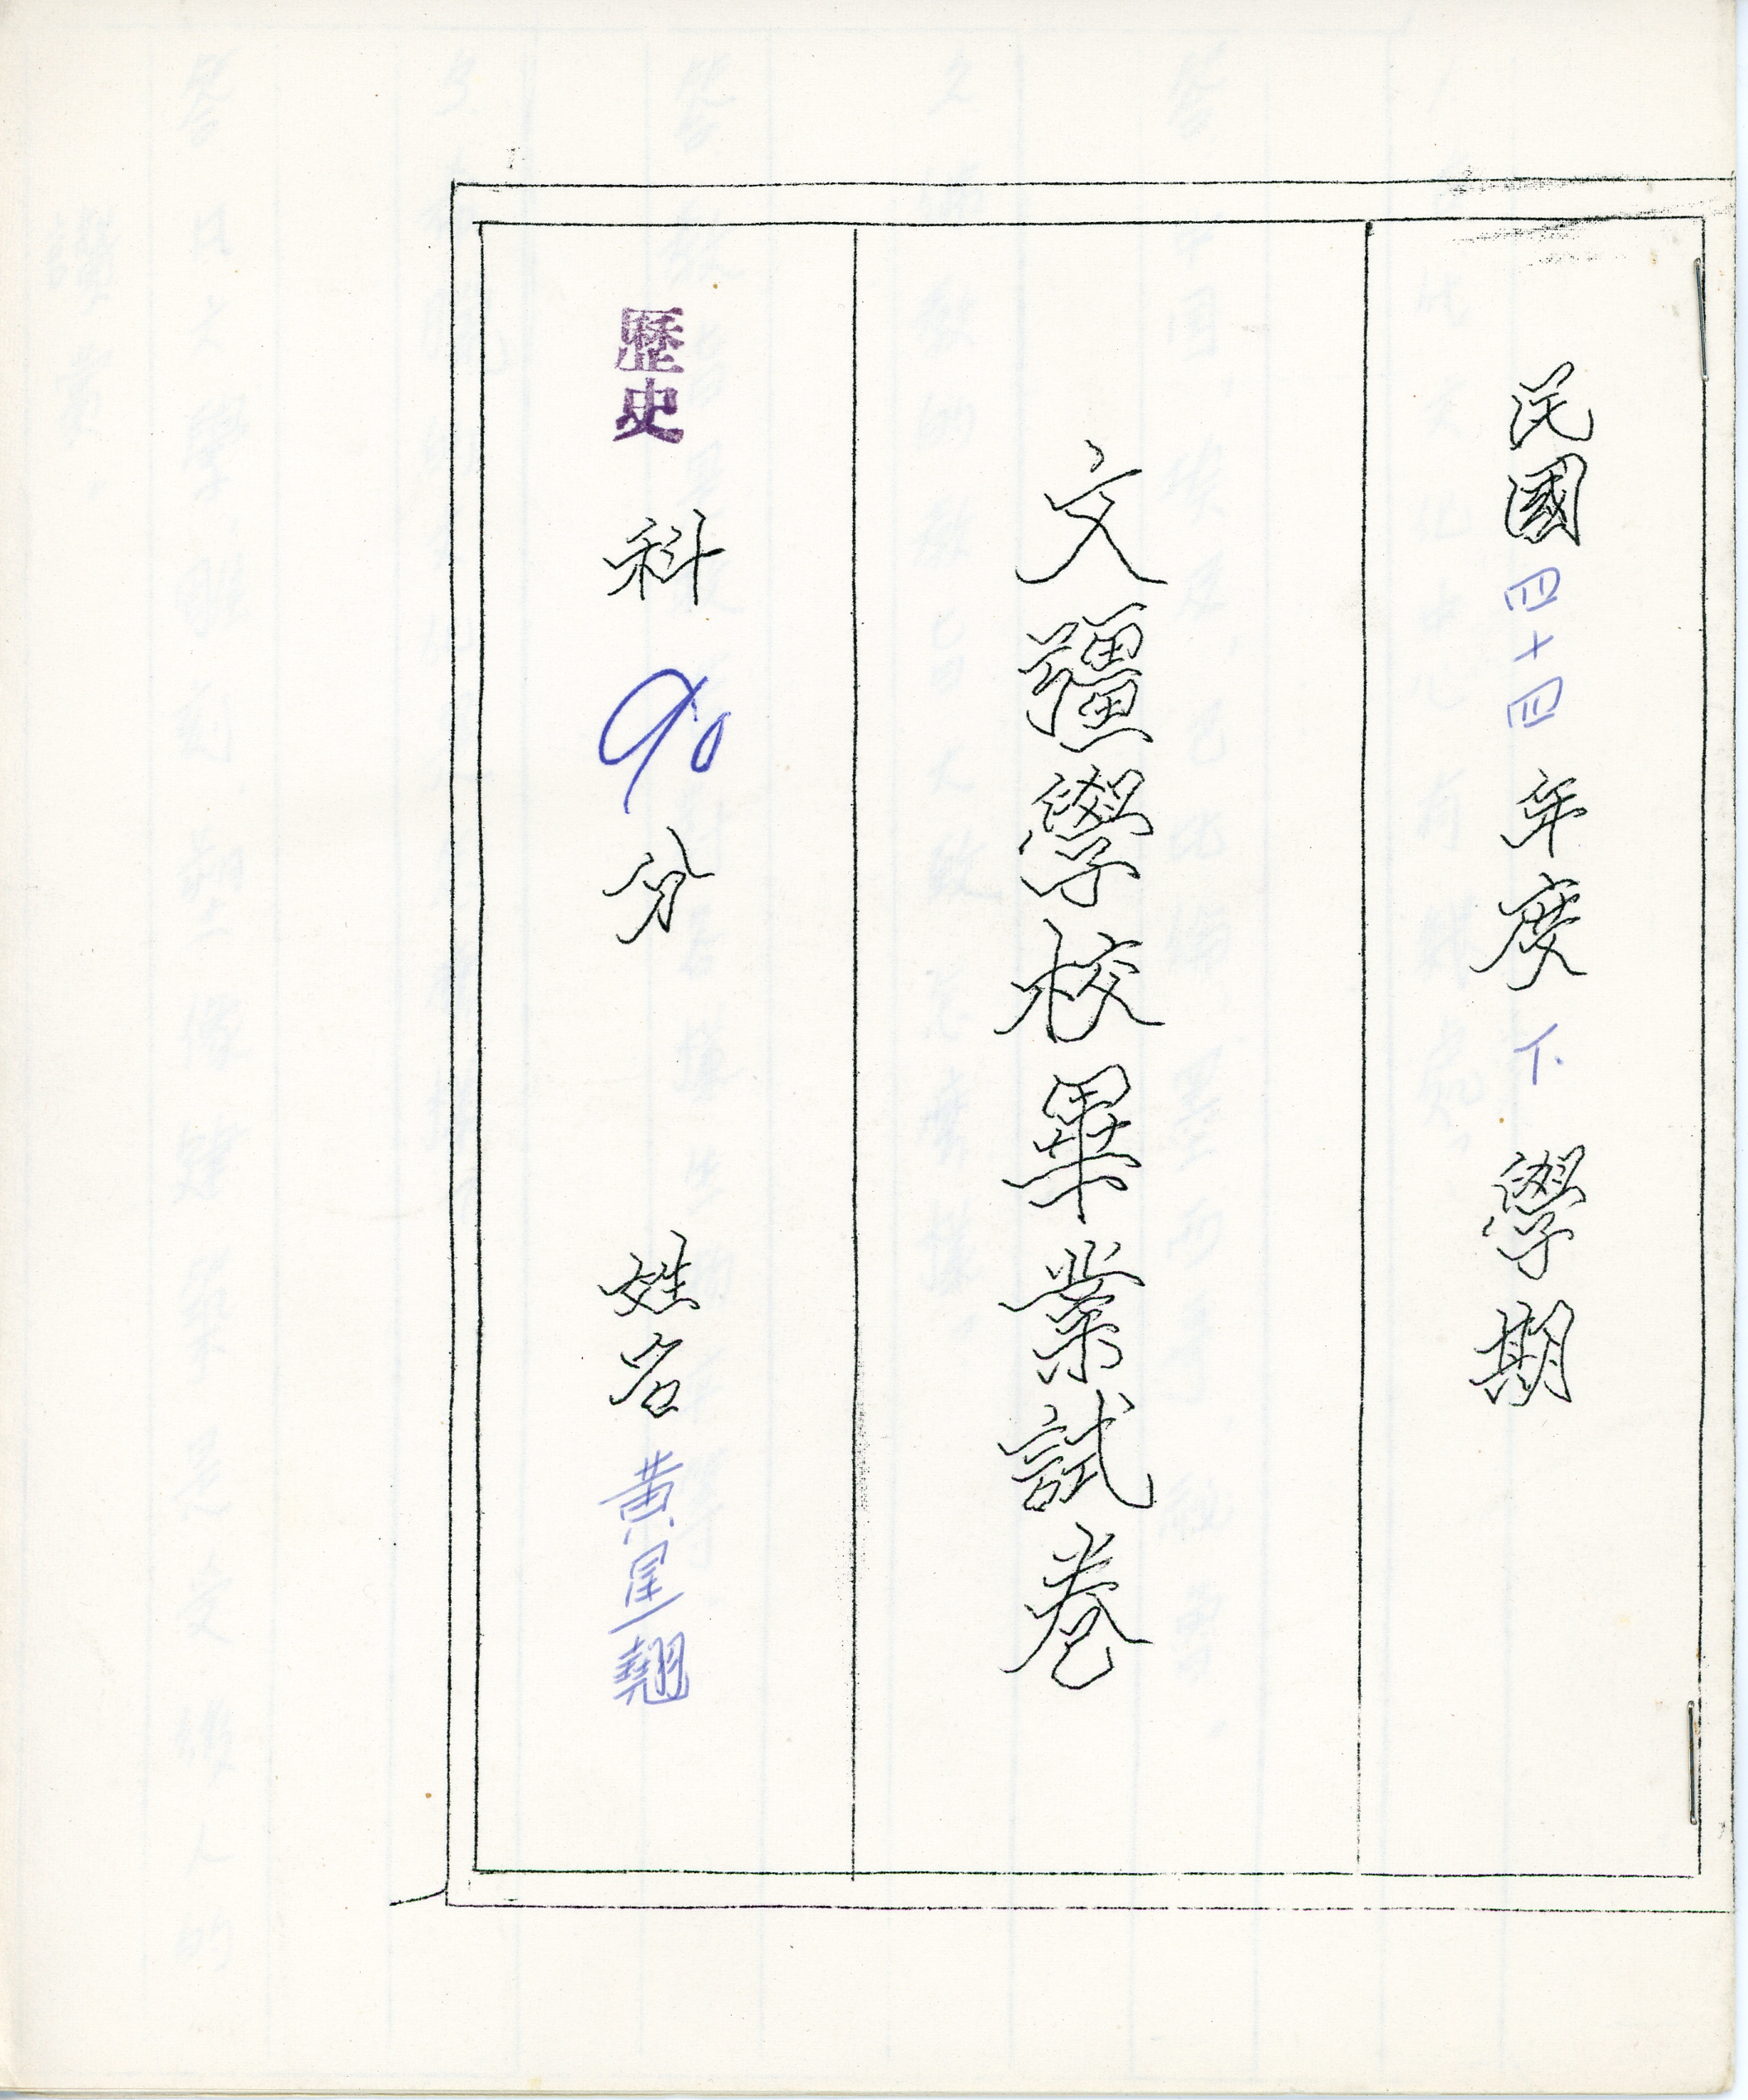 民國四十四年度下學期
文彊學校畢業試卷
歷史科90分 姓名黃星翹